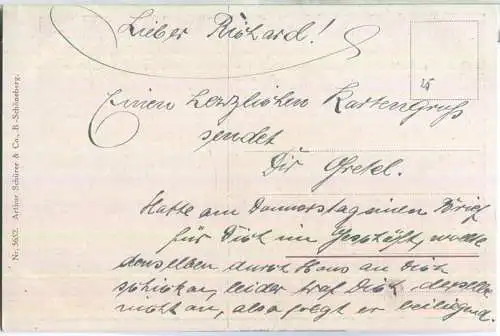 Lieber Richard!
Einen herzlichen Kartengruß
sendet
Dir Gretel.
Hatte am Donnerstag einen Brief
für Dich im Geschäft, wollte
denselben durch Hans an Dich
schicken, leider traf Dich derselbe
nicht an, also folgt er beiliegend.
Nr. 5652. Arthur Schürer & Co., B.-Schöneberg.